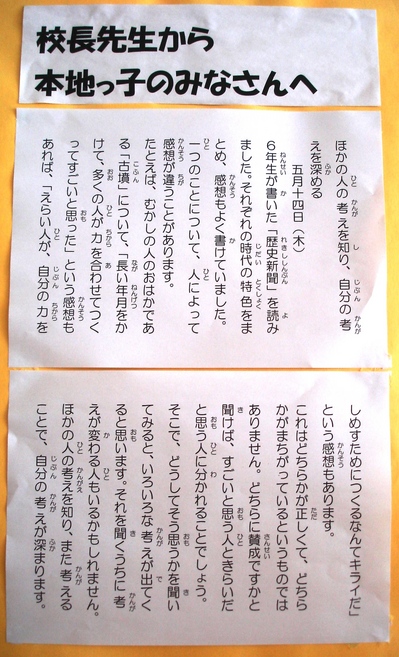 校長先生から
本地っ子のみなさんへ
ほかの人の考えを知り、自分の考
えを深める
五月十四日（木）
６年生が書いた「歴史新聞」を読み
ました。それぞれの時代の特色をま
とめ、感想もよく書けていました。
一つのことについて、人によって
感想が違うことがあります。
たとえば、むかしの人のおはかであ
る「古墳」について、「長い年月をか
けて、多くの人が力を合わせてつく
ってすごいと思った」という感想も
あれば、「えらい人が、自分の力を
しめすためにつくるなんてキライだ」
という感想もあります。
これはどちらかが正しくて、どちら
かがまちがっているというものでは
ありません。どちらに賛成ですかと
聞けば、すごいと思う人ときらいだ
と思う人に分かれることでしょう。
そこで、どうしてそう思うかを聞い
てみると、いろいろな考えが出てく
ると思います。それを聞くうちに考
えが変わる人もいるかもしれません。
ほかの人の考えを知り、また考える
ことで、自分の考えが深まります。